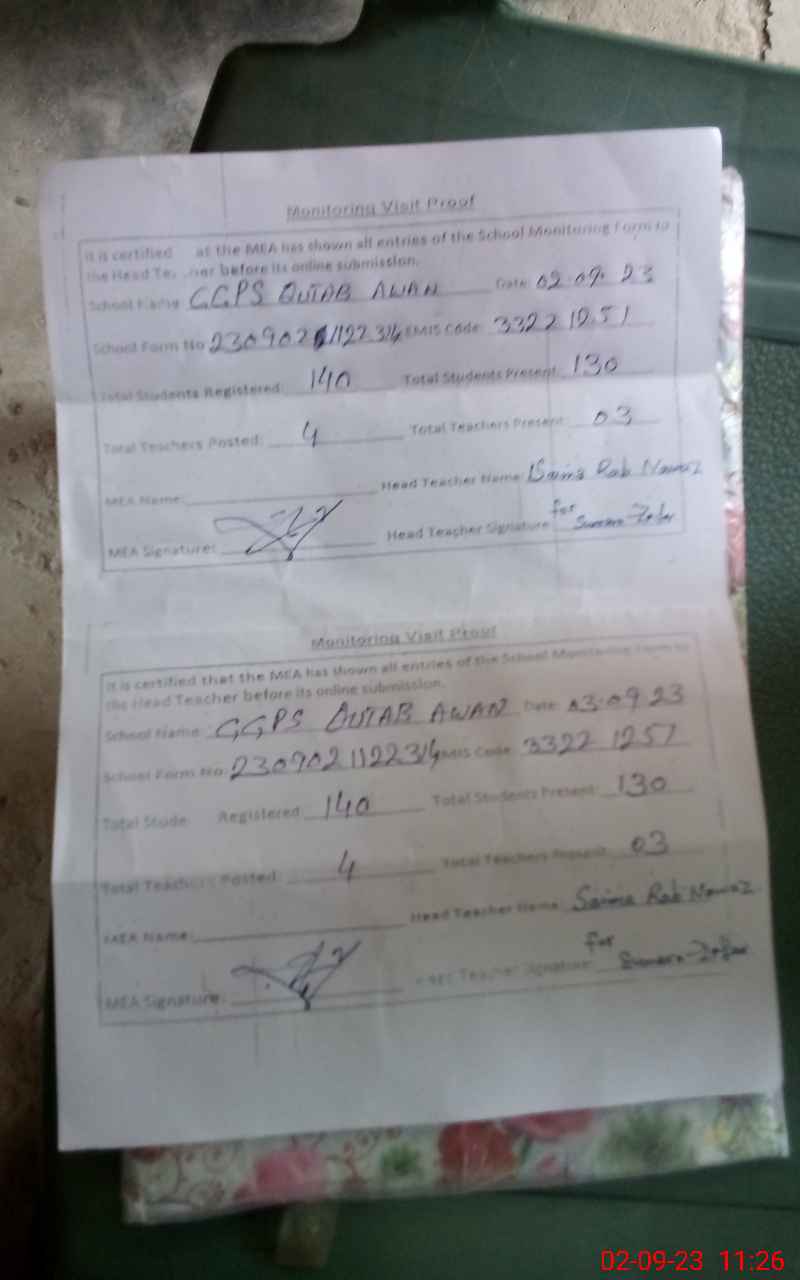 Monitoring Visit Proof
It is certified at the MEA has shown all entries of the School Monitoring Form to
the Head Te her before its online submission.
School Name GGPS QUTAB AWAN Date: 02.09.23
School Form No 23090211122314 EMIS Code: 33221251
Total Students Registered: 140 Total Students Present: 130
Total Teachers Posted: 4 Total Teachers Present: 03
MEA Name: Head Teacher Name: Saima Rab Nawaz
MEA Signature: Head Teacher Signature for Sumera Zafar
Monitoring Visit Proof
It is certified that the MEA has shown all entries of the School Monitoring Form to
the Head Teacher before its online submission.
School Name: GGPS QUTAB AWAN Date: 03.09.23
School Form No: 2309021122314 EMIS Code: 33221251
Total Stude Registered 140 Total Students Present: 130
Total Teachers Posted: 4 Total Teachers Present: 03
MEA Name: Head Teacher Name: Saima Rab Nawaz
MEA Signature: Head Teacher Signature: for Sumera Zafar
02-09-23 11:26